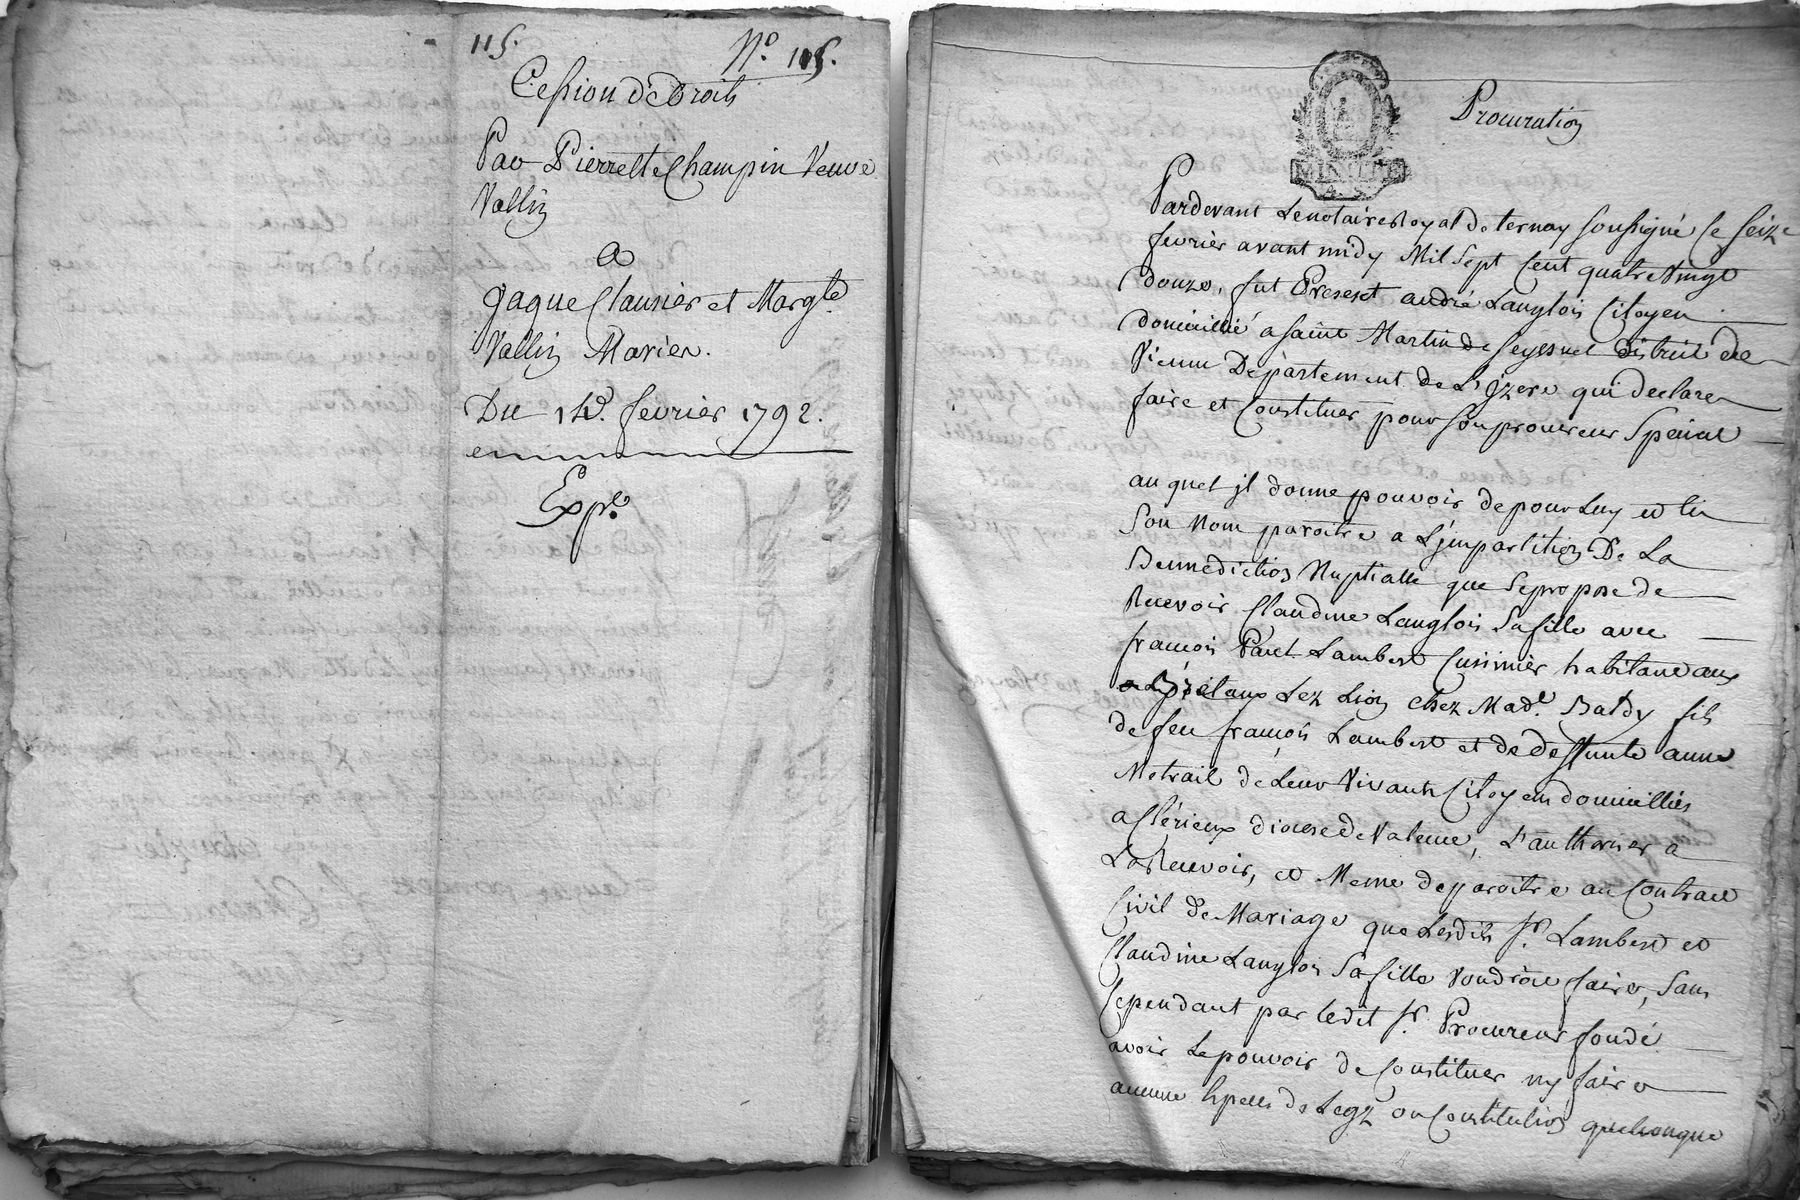 115.
N.º 115.
Cession de Droits
Par Pierrette Champin Veuve
Vallin
a
gaque Clausier et Marg.te
Vallin Mariés.
Du 14.e fevrier 1792.
Exp.e
Procuration
MINUTE
Pardevant Le notaire Royal de ternay soussigné le seize
fevrier avant midy Mil Sept Cent quatre Vingt
douze, fut Present andré Langlois Citoyen
domicillié a saint Martin de seyssuel district de
Vienne Département de L'Izere qui declare
faire et Constituer pour son procureur Special
auquel jl donne pouvoir de pour Luy et en
Son Nom paroitre a L'jmpartition De La
Bennediction Nuptialle que Se propose de
Recevoir Claudine Langlois Sa fille avec
francois Paul Lambert Cuisinier habitant aux
Lez Lion chez Mad.e Baldy fils
de feu françois Lambert et de deffunte anne
Metrail de Leur Vivant Citoyens domicilliés
a Clérieux diocese de Valence, L'authoriser a
La Recevoir, et Meme de paroitre au Contract
Civil de Mariage que Lesdits S.r Lambert et
Claudine Langlois Sa fille Voudront faire, Sans
Cependant par ledit S.r Procureur fondé
avoir Le pouvoir de Constituer ny faire
aucune Especes de Legz ou Constitution quelconque